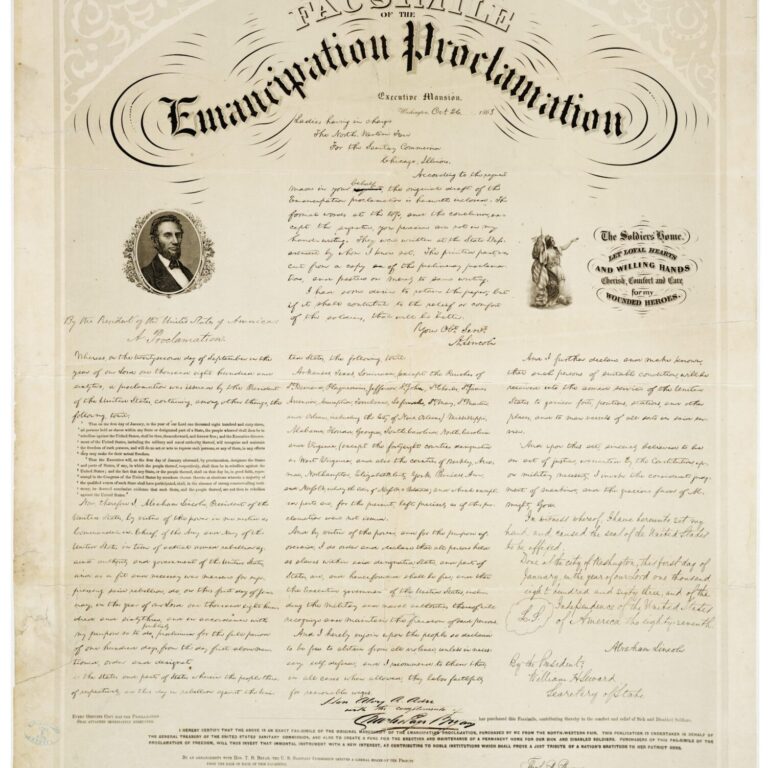 FACSIMILE
OF THE
Emancipation Proclamation
Executive Mansion,
Washington, Oct 26, 1863
Ladies having in charge
The North-Western Fair
For the Sanitary Commission
Chicago, Illinois.
According to the request
made in your behalf, the original draft of the
Emancipation proclamation is herewith enclosed. The
formal words at the top, and the conclusion, ex-
cept the signature, you perceive, are not in my
hand-writing. They were written at the State De-
partment by whom I know not. The printed part was
cut from a copy of the preliminary proclama-
tion, and pasted on merely to save writing.
I had some desire to retain the paper; but
if it shall contribute to the relief or comfort
of the soldiers, that will be better.
Your Obt. Servt.
A. Lincoln
The Soldiers Home.
LET LOYAL HEARTS
AND WILLING HANDS
Cherish, Comfort and Care
for my
WOUNDED HEROES.
By the President of the United States of America:
A Proclamation.
Whereas, on the twenty-second day of September, in the
year of our Lord one thousand eight hundred and
sixty-two, a proclamation was issued by the President
of the United States, containing, among other things, the
following, to wit:
"That on the first day of January, in the year of our Lord one thousand eight hundred and sixty-three,
all persons held as slaves within any State or designated part of a State, the people whereof shall then be in
rebellion against the United States, shall be then, thenceforward, and forever free; and the Executive Govern-
ment of the United States, including the military and naval authority thereof, will recognize and maintain
the freedom of such persons, and will do no act or acts to repress such persons, or any of them, in any efforts
they may make for their actual freedom.
"That the Executive will, on the first day of January aforesaid, by proclamation, designate the States
and parts of States, if any, in which the people thereof, respectively, shall then be in rebellion against the
United States; and the fact that any State, or the people thereof, shall on that day be, in good faith, repre-
sented in the Congress of the United States by members chosen thereto at elections wherein a majority of
the qualified voters of such State shall have participated, shall, in the absence of strong countervailing testi-
mony, be deemed conclusive evidence that such State, and the people thereof, are not then in rebellion
against the United States."
Now, therefore I, Abraham Lincoln, President of the
United States, by virtue of the power in me vested as
Commander-in-Chief, of the Army and Navy of the
United States in time of actual armed rebellion against
authority and government of the United States,
and as a fit and necessary war measure for sup-
pressing said rebellion, do, on this first day of Janu-
ary, in the year of our Lord one thousand eight hun-
dred and sixty-three, and in accordance with
my purpose so to do, publicly proclaim for the full period
of one hundred days, from the day first above men-
tioned, order and designate
as the States and parts of States wherein the people there-
of respectively, are this day in rebellion against the Uni-
ted States, the following, towit:
Arkansas, Texas, Louisiana, (except the Parishes of
St. Bernard, Plaquemines, Jefferson, St. John, St. Charles, St. James
Ascension, Assumption, Terrebonne, Lafourche, St. Mary, St. Martin
and Orleans, including the City of New Orleans) Mississippi,
Alabama, Florida, Georgia, South Carolina, North Carolina
and Virginia, (except the fortyeight counties designated
as West Virginia, and also the counties of Berkley, Acco-
mac, Northampton, Elizabeth City, York, Princess Ann,
and Norfolk, including the cities of Norfolk & Portsmouth); and which excepted
parts are, for the present, left precisely as if this pro-
clamation were not issued.
And by virtue of the power, and for the purpose afo-
resaid, I do order and declare that all persons held
as slaves within said designated States, and parts of
States, are, and henceforward shall be free; and that
the Executive government of the United States, inclu-
ding the military and naval authorities thereof, will
recognize and maintain the freedom of said persons.
And I hereby enjoin upon the people so declared
to be free to abstain from all violence, unless in neces-
sary self-defence; and I recommend to them that,
in all cases when allowed, they labor faithfully
for reasonable wages.
And I further declare and make known,
that such persons of suitable condition, will be
received into the armed service of the United
States to garrison forts, positions, stations, and other
places, and to man vessels of all sorts in said ser-
vice.
And upon this act, sincerely believed to be
an act of justice, warranted by the Constitution, up-
on military necessity, I invoke the considerate judg-
ment of mankind, and the gracious favor of Al-
mighty God.
In witness whereof, I have hereunto set my
hand and caused the seal of the United States
to be affixed.
Done at the city of Washington, this first day of
January, in the year of our Lord one thousand
eight hundred and sixty three, and of the
Independence of the United States
(L.S.) of America the eighty-seventh.
Abraham Lincoln
By the President:
William H. Seward
Secretary of State
with the compliments
has purchased this Facsimile, contributing thereby to the comfort and relief of Sick and Disabled Soldiers.
I HEREBY CERTIFY THAT THE ABOVE IS AN EXACT FAC-SIMILE OF THE ORIGINAL MANUSCRIPT OF THE EMANCIPATION PROCLAMATION, PURCHASED BY ME FROM THE NORTH-WESTERN FAIR. THIS PUBLICATION IS UNDERTAKEN IN BEHALF OF
THE GENERAL TREASURY OF THE UNITED STATES SANITARY COMMISSION, AND ALSO TO CREATE A FUND FOR THE ERECTION AND MAINTENANCE OF A PERMANENT HOME FOR OUR SICK AND DISABLED SOLDIERS. PURCHASERS OF THIS FAC-SIMILE OF THE
PROCLAMATION OF FREEDOM, WILL THUS INVEST THAT IMMORTAL INSTRUMENT WITH A NEW INTEREST, AS CONTRIBUTING TO NOBLE INSTITUTIONS WHICH SHALL PROVE A JUST TRIBUTE OF A NATION'S GRATITUDE TO HER PATRIOT SONS.